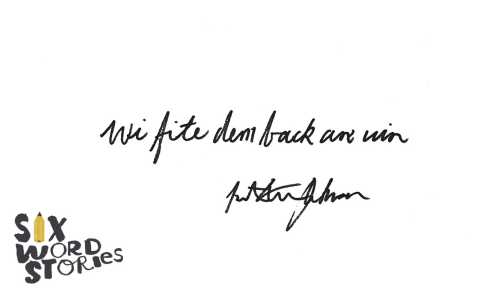 Wi fite dem back an win
SIX
WORD
STORIES